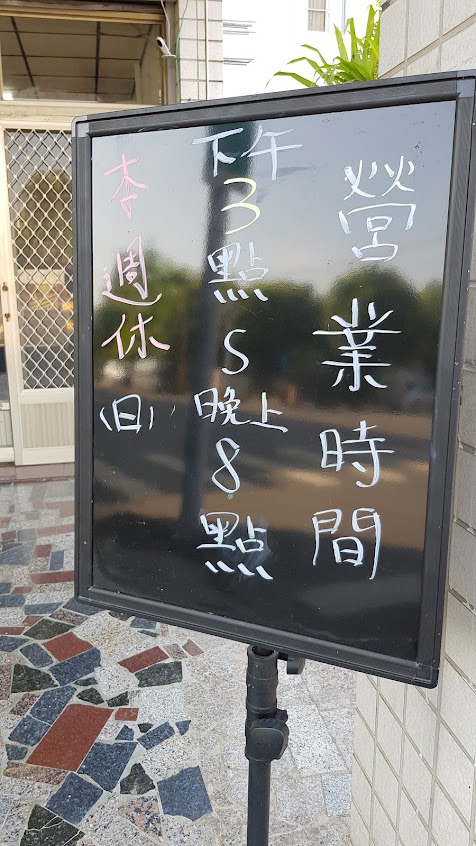 營業時間
下午3點S晚上8點
本週休(日)